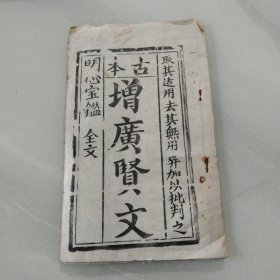 取其适用去其無用并加以批判之
古本
增廣賢文
明心宝鑑 全文